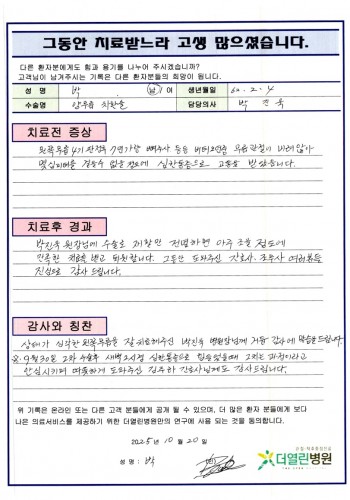 그동안 치료받느라 고생 많으셨습니다.
다른 환자분에게도 힘과 용기를 나누어 주시겠습니까?
고객님이 남겨주시는 기록은 다른 환자분들의 희망이 됩니다.
성 명 박 남 여 생년월일 60. 2. 4
수술명 양무릎 치환술 담당의사 박진욱
치료전 증상
왼쪽무릎 4기 판정후 7년가량 버티
심한통증으로 고통을 받았습니다.
치료후 경과
박진욱 원장님께 수술로 재활만 전념하면 아주 좋을 정도에
만족한 치료를 받고 퇴원합니다. 그동안 도와주신 간호사. 조무사 여러분들
진심으로 감사 드립니다.
감사와 칭찬
상태가 심각한 왼쪽무릎을 잘 치료해주신 박진욱 병원장님께 거듭 감사에 말씀을 드립니다
9월 30일 2차 수술후 새벽 2시경 심한통증으로 힘들었을때 과정이라고
안심시키며 따뜻하게 도와주신 간호사님께도 감사드립니다.
위 기록은 온라인 또는 다른 고객 분들에게 공개 될 수 있으며, 더 많은 환자 분들에게 보다
나은 의료서비스를 제공하기 위한 더열린병원만의 연구에 사용 되는 것을 동의합니다.
2025년 10월 20일
성 명 : 박
더열린병원